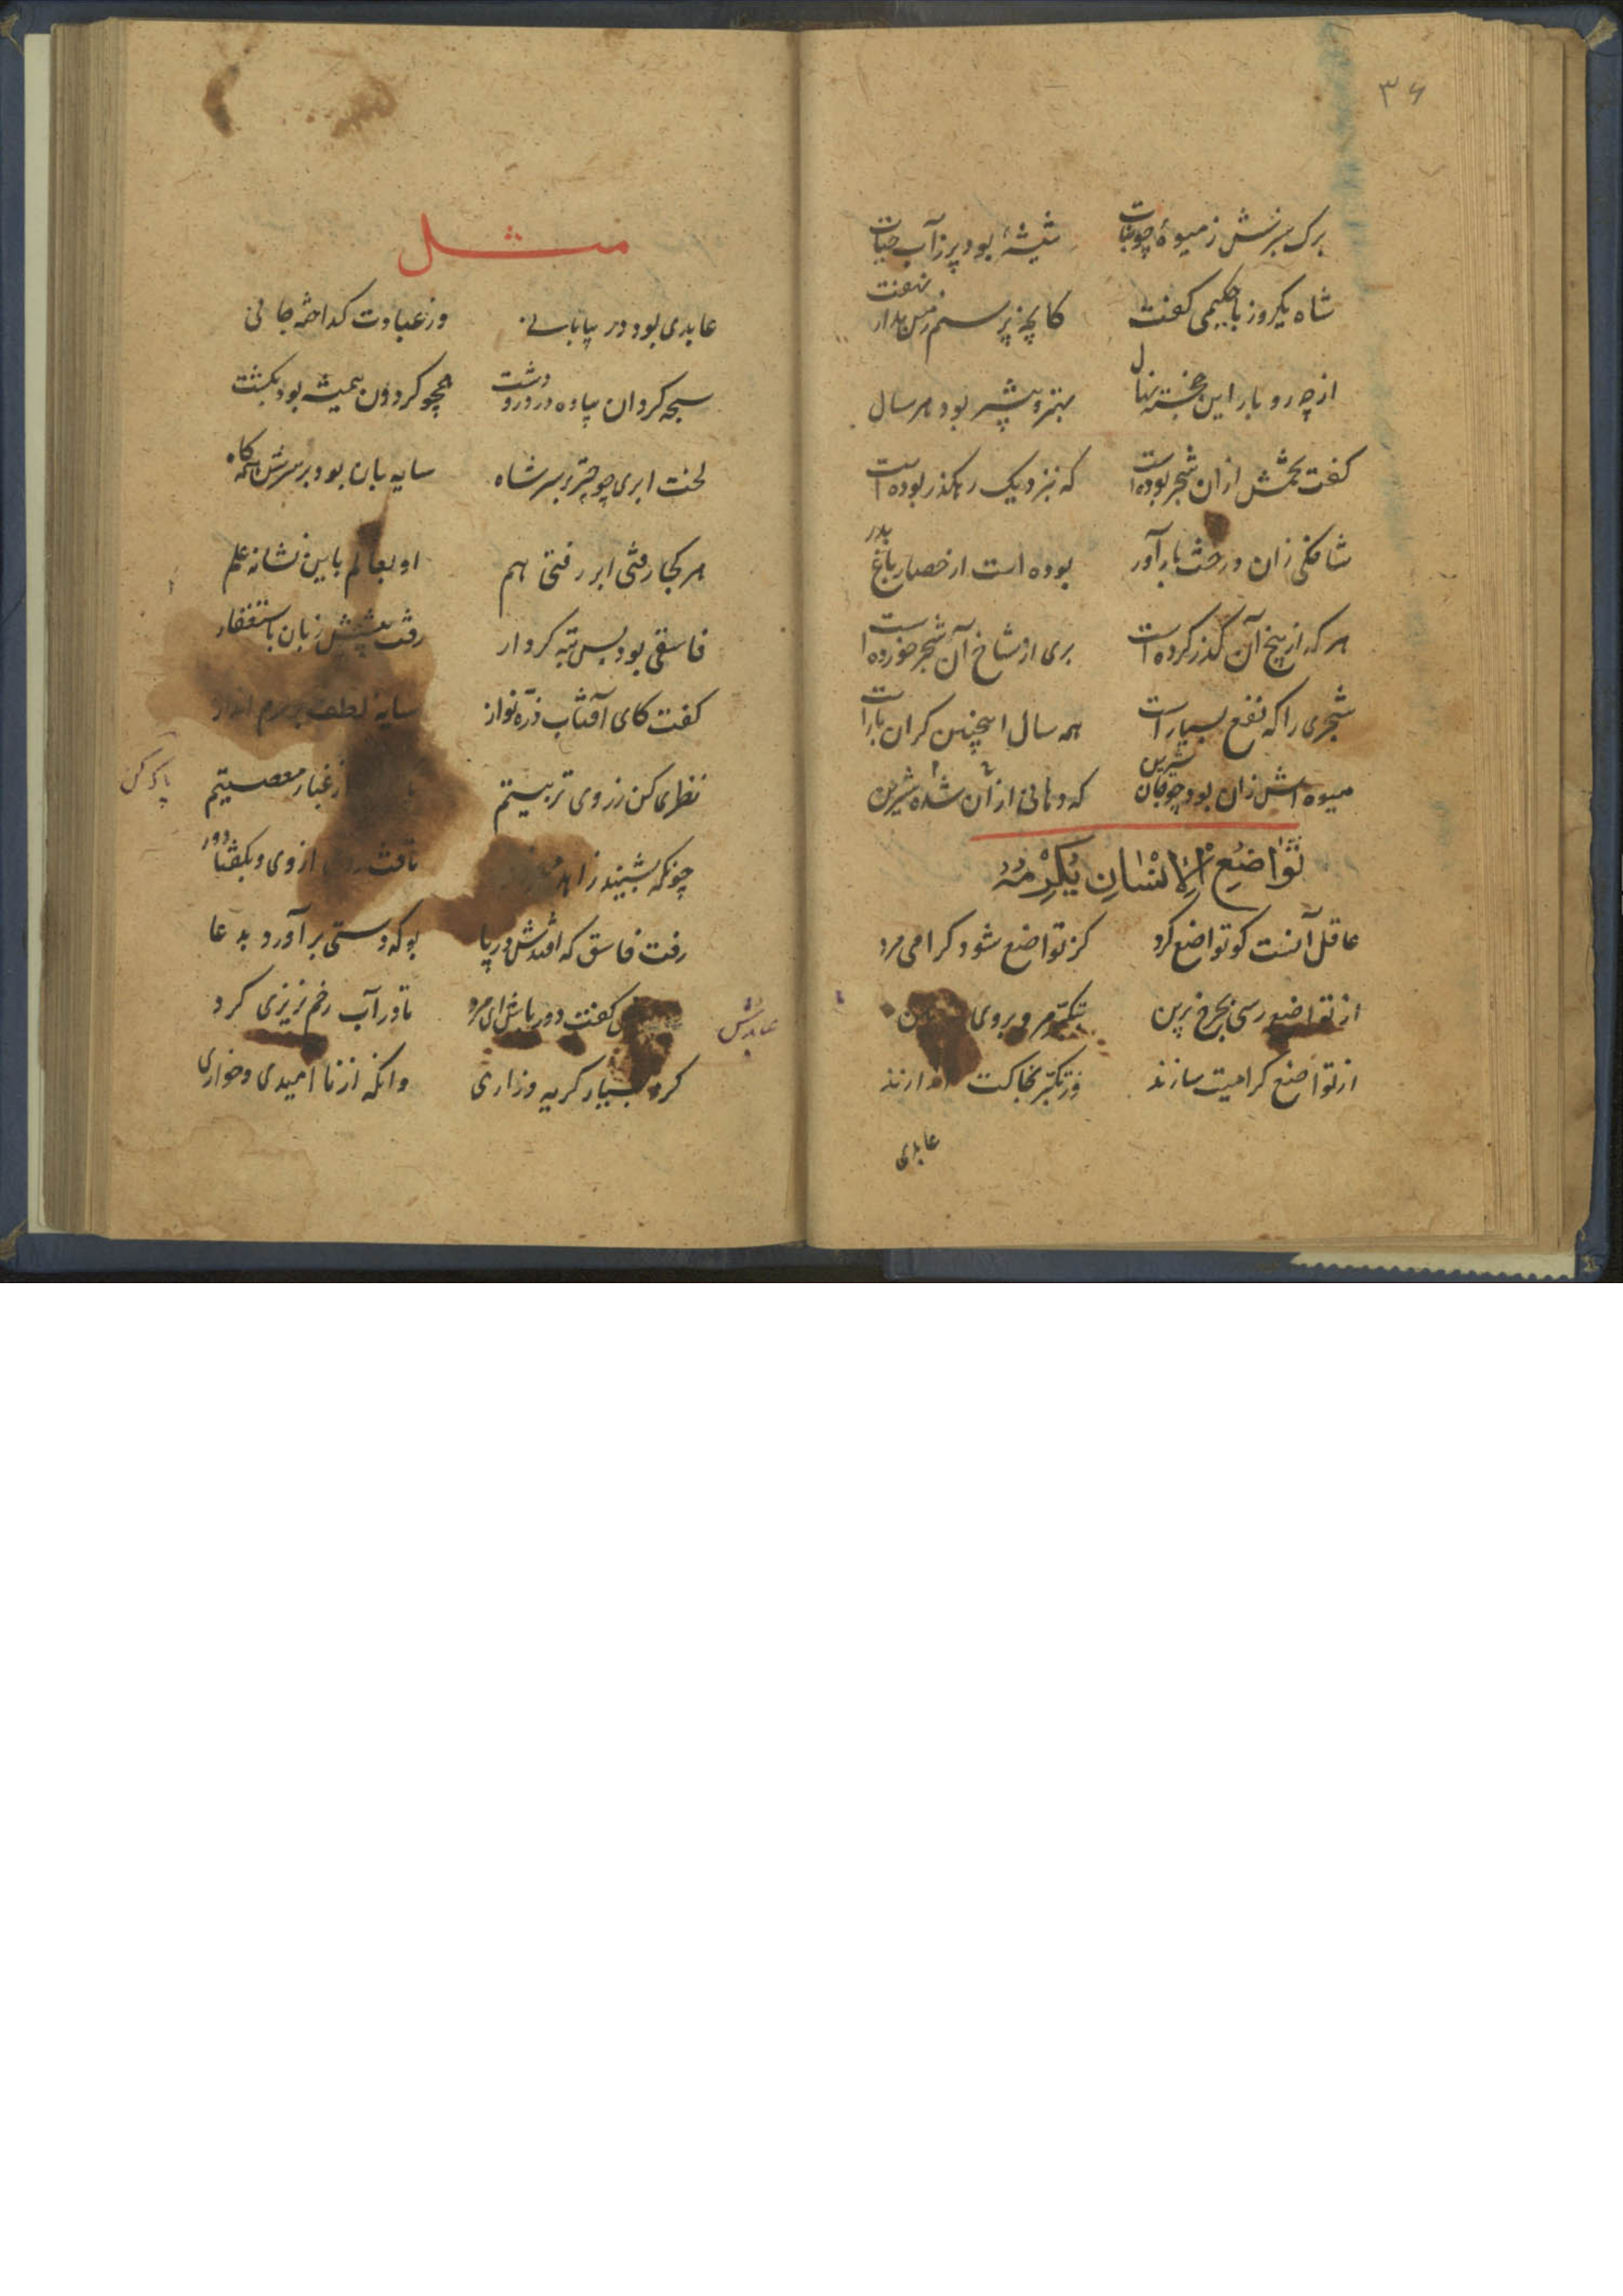 ۳۶
برک سبزش ز میوهٔ چو نبات شیشهٔ بود پر ز آب حیات
شاه یکروز با حکیمی کفت کانچه پرسم ز من مدار نهفت
از چه رو بار این خجسته نهال بهتر و بیشتر بود هر سال
کفت تخمش از ان شجر بوده است که بنزدیک رهکذر بوده است
شاخکی زان درخت بارآور بوده است از حصار باغ بدر
هر که از بیخ آن کذر کرده است بری از شاخ آن شجر خورده است
شجری را که نفع بسیار است همه سال اینچنین کران بار است
میوه اش زان بود چو قان شیرین که دهانی از آن شده شیرین
تواضع الانسان یکرمه
عاقل آنست کو تواضع کرد کز تواضع شود کرامی مرد
از تواضع رسی بچرخ برین تکبر مرو بروی
از تواضع کرامیت سازند وز تکبر بخاکت اندازند
عابدی
مثل
عابدی بود در بیابانی وز عبادت کداخته جانی
سبحه کردان پیاده در در و دشت همچو کردون همیشه بود بکشت
لخت ابری چو چتر بر سر شاه سایه بان بود بر سرش همه کاه
هر کجا رفتی ابر رفتی هم او بعالم باین نشانه علم
فاسقی بود بس تبه کردار رفت پیشش زبان باستغفار
کفت کای آفتاب ذره نواز سایه لطف بر سرم انداز
نظری کن ز روی تربیتم ز غبار معصیتم
پاک کن
چونکه بشنید زاهد تافت از وی و بکفتا دور
رفت فاسق که افتدش در پا بو که دستی برآورد بدعا
کفت دور باش ای مرد تا در آب رخم نریزی کرد
عابدش
کرد بسیار کریه و زاری وانکه از نا امیدی و خواری